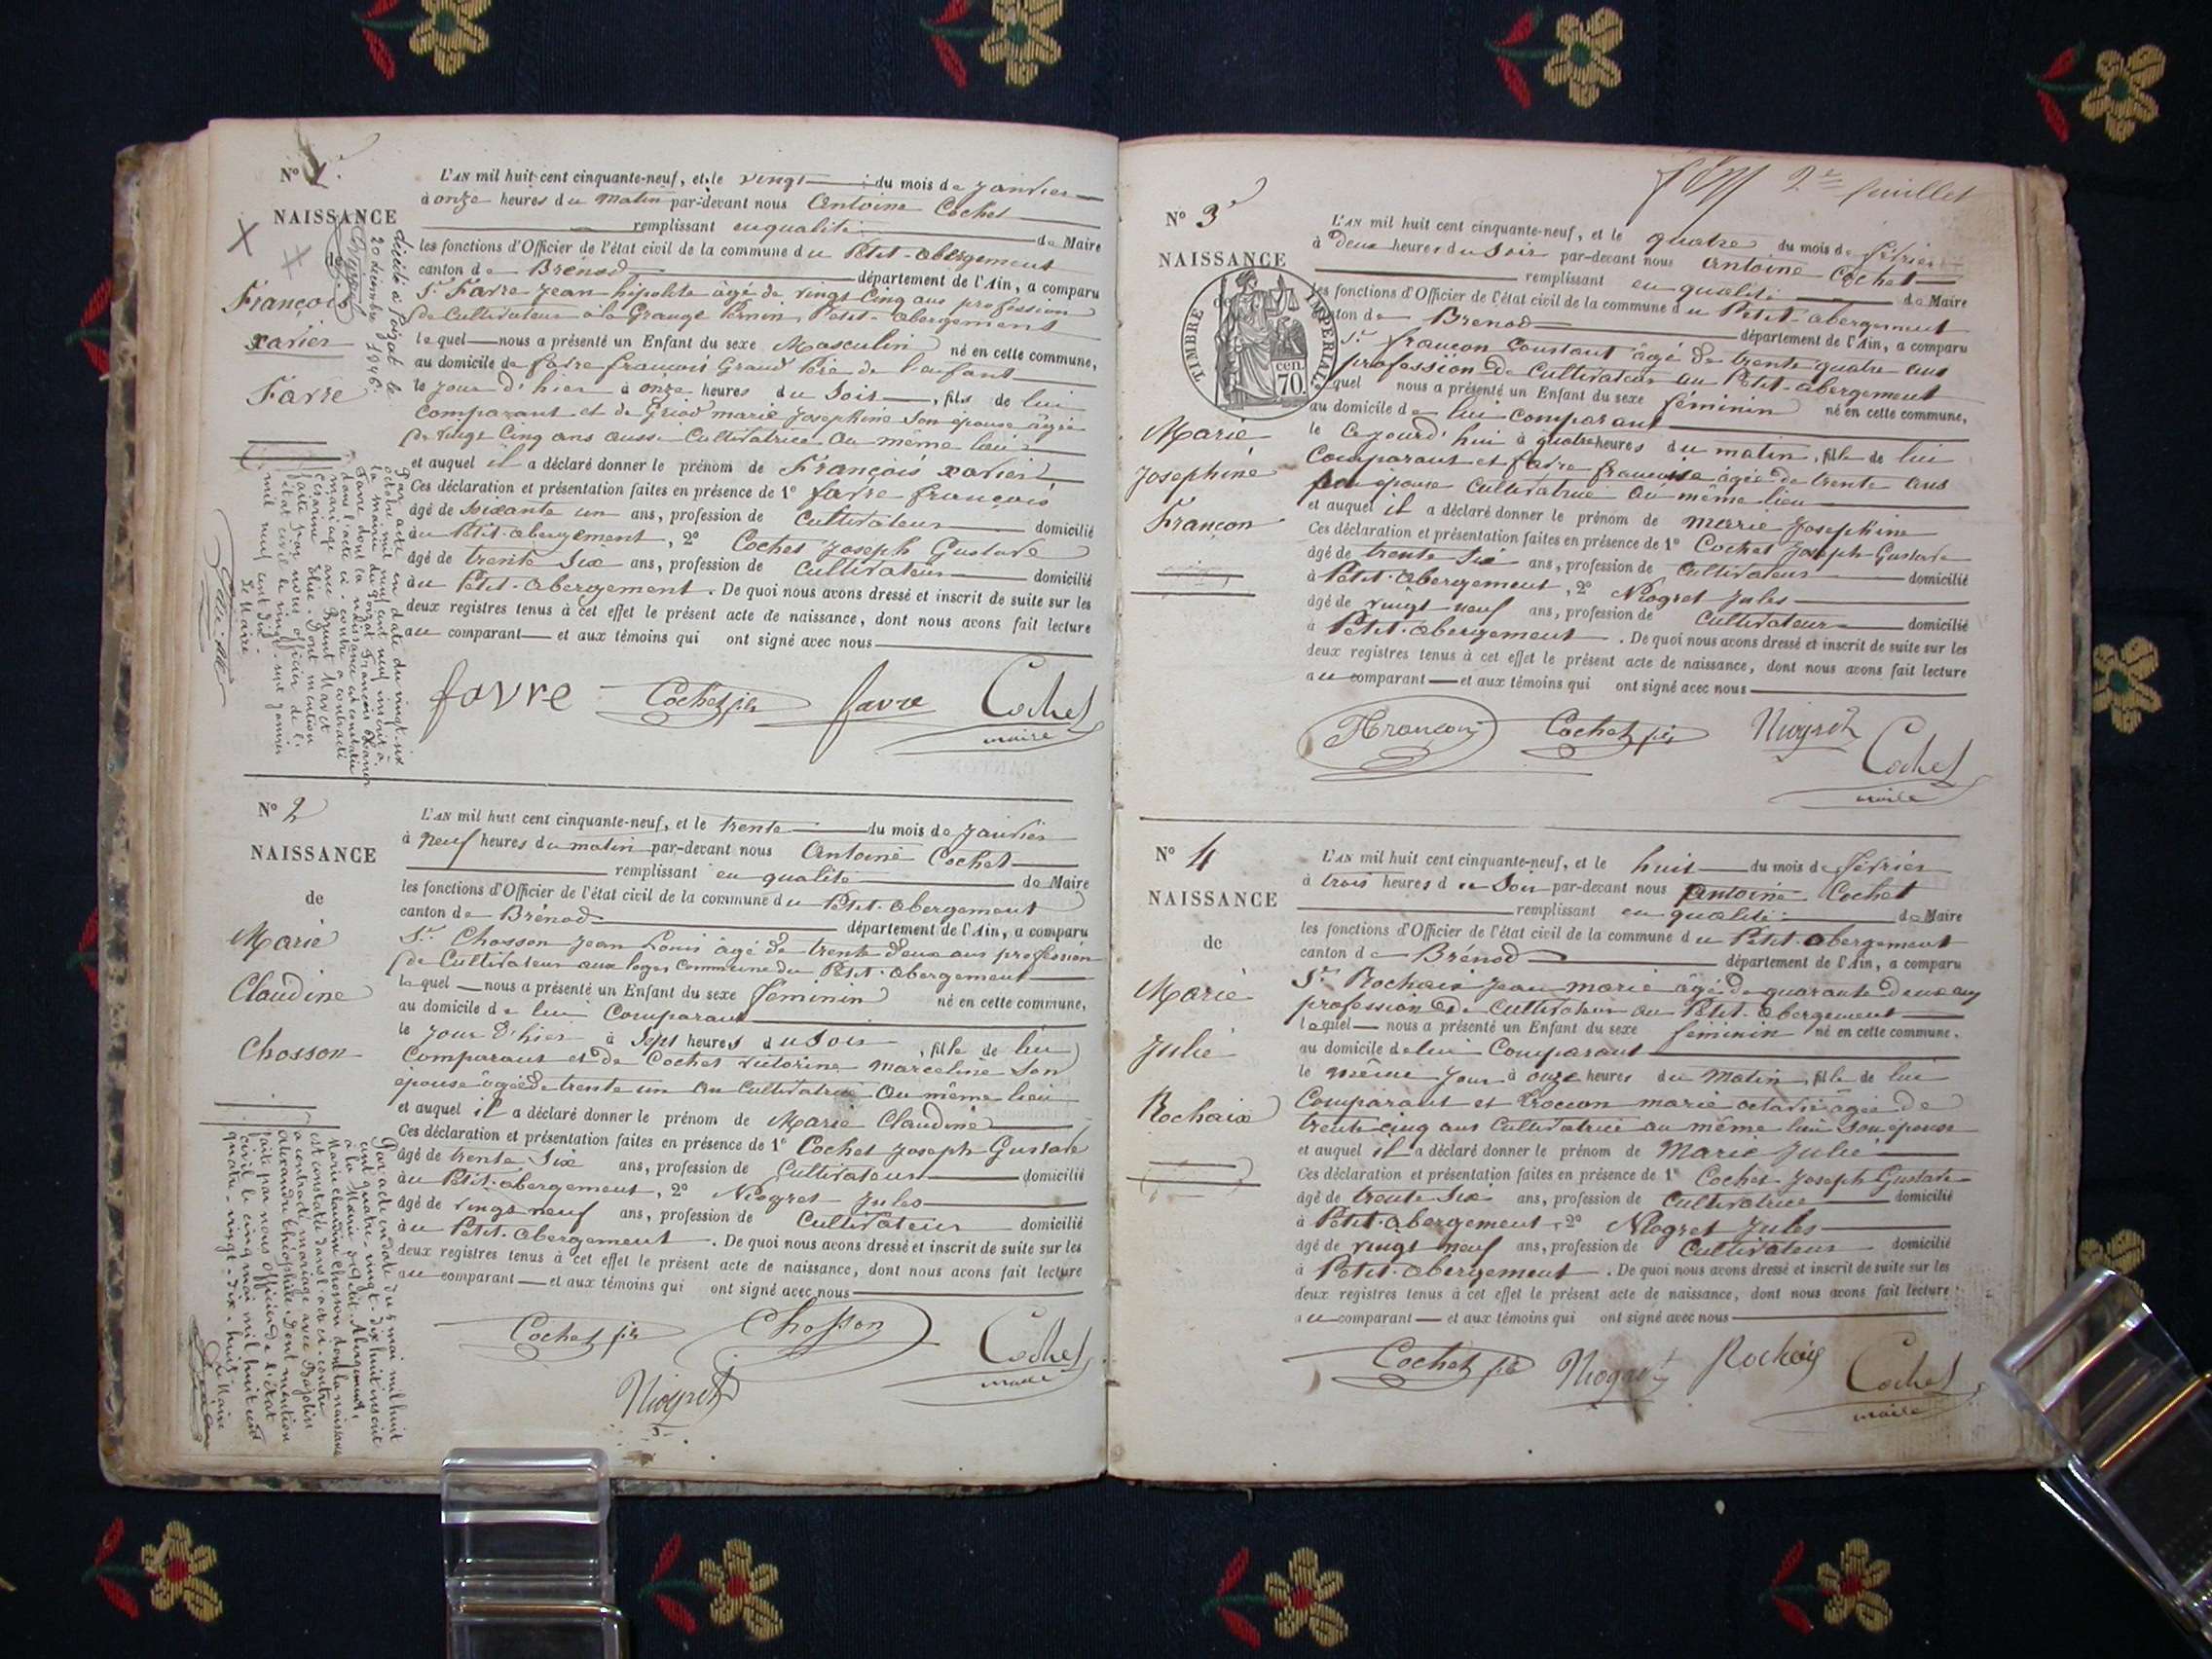 N° 1.
NAISSANCE
de
François
xavier
Favre
décédé à
le
20 décembre 1946
L'AN mil huit cent cinquante-neuf, et le vingt du mois de Janvier
à onze heures du matin par-devant nous Antoine Cochet
remplissant en qualité de Maire
les fonctions d'Officier de l'état civil de la commune du Petit-abergement
canton de Brénod département de l'Ain, a comparu
Sr. Favre Jean hipolite âgé de vingt cinq ans profession
de Cultivateur à la Grange Petit-abergement
lequel nous a présenté un Enfant du sexe Masculin né en cette commune,
au domicile de favre françois Grand Père de l'enfant
le jour d'hier à onze heures du Soir, fils de lui
comparant et de Griod marie Josephine Son épouse âgée
de vingt cinq ans aussi Cultivatrice au même lieu
et auquel il a déclaré donner le prénom de François xavier
Ces déclaration et présentation faites en présence de 1° favre françois
âgé de Soixante un ans, profession de Cultivateur domicilié
au Petit-abergement, 2° Cochet Joseph Gustave
âgé de trente Six ans, profession de Cultivateur domicilié
au Petit-abergement. De quoi nous avons dressé et inscrit de suite sur les
deux registres tenus à cet effet le présent acte de naissance, dont nous avons fait lecture
au comparant et aux témoins qui ont signé avec nous
favre Cochet fils favre Cochet
maire
Par acte en date du vingt-six
octobre mil neuf cent neuf inscrit à
la mairie du François Xavier
Favre dont la naissance est constatée
dans l'acte ci-contre a contracté
mariage avec Brunet
Elise. Dont mention
faite par nous officier de l'
état civil le vingt-sept janvier
mil neuf cent dix
Le Maire
N° 2
NAISSANCE
de
Marie
Claudine
Chosson
L'AN mil huit cent cinquante-neuf, et le trente du mois de Janvier
à neuf heures du matin par-devant nous Antoine Cochet
remplissant en qualité de Maire
les fonctions d'Officier de l'état civil de la commune du Petit-abergement
canton de Brénod département de l'Ain, a comparu
Sr. Chosson Jean Louis âgé de trente deux ans profession
de Cultivateur aux loges Commune du Petit-abergement
lequel nous a présenté un Enfant du sexe féminin né en cette commune,
au domicile de lui Comparant
le jour d'hier à Sept heures du Soir, fille de lui
Comparant et de Cochet victorine marceline Son
épouse âgée de trente un an Cultivatrice au même lieu
et auquel il a déclaré donner le prénom de Marie Claudine
Ces déclaration et présentation faites en présence de 1° Cochet Joseph Gustave
âgé de trente Six ans, profession de Cultivateur domicilié
au Petit-abergement, 2° Niogret Jules
âgé de vingt neuf ans, profession de Cultivateur domicilié
au Petit-abergement. De quoi nous avons dressé et inscrit de suite sur les
deux registres tenus à cet effet le présent acte de naissance, dont nous avons fait lecture
au comparant et aux témoins qui ont signé avec nous
Cochet fils Chosson Cochet
Niogret maire
Par acte en date du 5 mai mil huit
cent quatre-vingt-dix huit inscrit
à la Mairie du Petit-Abergement,
Marie Claudine Chosson dont la naissance
est constatée dans l'acte ci-contre
a contracté mariage avec
alexandre théophile. Dont mention
faite par nous officier de l'état
civil le cinq mai mil huit cent
quatre-vingt-dix-huit
Le Maire
2e feuillet
N° 3
NAISSANCE
TIMBRE IMPERIAL
70 cen.
Marie
Josephine
Françon
L'AN mil huit cent cinquante-neuf, et le quatre du mois de février
à Deux heures du Soir par-devant nous Antoine Cochet
remplissant en qualité de Maire
les fonctions d'Officier de l'état civil de la commune du Petit-abergement
canton de Brenod département de l'Ain, a comparu
Sr. françon Constant âgé de trente quatre ans
profession de Cultivateur au Petit-abergement
lequel nous a présenté un Enfant du sexe féminin né en cette commune,
au domicile de lui comparant
le Cejourd'hui à quatre heures du matin, fille de lui
Comparant et favre françoise âgée de trente ans
son épouse Cultivatrice au même lieu
et auquel il a déclaré donner le prénom de marie Josephine
Ces déclaration et présentation faites en présence de 1° Cochet Joseph Gustave
âgé de trente Six ans, profession de Cultivateur domicilié
à Petit-abergement, 2° Niogret Jules
âgé de vingt neuf ans, profession de Cultivateur domicilié
à Petit-abergement. De quoi nous avons dressé et inscrit de suite sur les
deux registres tenus à cet effet le présent acte de naissance, dont nous avons fait lecture
au comparant et aux témoins qui ont signé avec nous
Françon Cochet fils Niogret Cochet
maire
N° 4
NAISSANCE
de
Marie
Julie
Rochaix
L'AN mil huit cent cinquante-neuf, et le huit du mois de février
à trois heures du Soir par-devant nous Antoine Cochet
remplissant en qualité de Maire
les fonctions d'Officier de l'état civil de la commune du Petit-abergement
canton de Brénod département de l'Ain, a comparu
Sr. Rochaix Jean marie âgé de quarante deux ans
profession de Cultivateur au Petit-abergement
lequel nous a présenté un Enfant du sexe féminin né en cette commune.
au domicile de lui Comparant
le même jour à onze heures du Matin, fille de lui
Comparant et marie octavie âgée de
trente cinq ans Cultivatrice au même lieu son épouse
et auquel il a déclaré donner le prénom de Marie Julie
Ces déclaration et présentation faites en présence de 1° Cochet Joseph Gustave
âgé de trente Six ans, profession de Cultivateur domicilié
à Petit-abergement, 2° Niogret Jules
âgé de vingt neuf ans, profession de Cultivateur domicilié
à Petit-abergement. De quoi nous avons dressé et inscrit de suite sur les
deux registres tenus à cet effet le présent acte de naissance, dont nous avons fait lecture
au comparant et aux témoins qui ont signé avec nous
Cochet fils Niogret Rochaix Cochet
maire